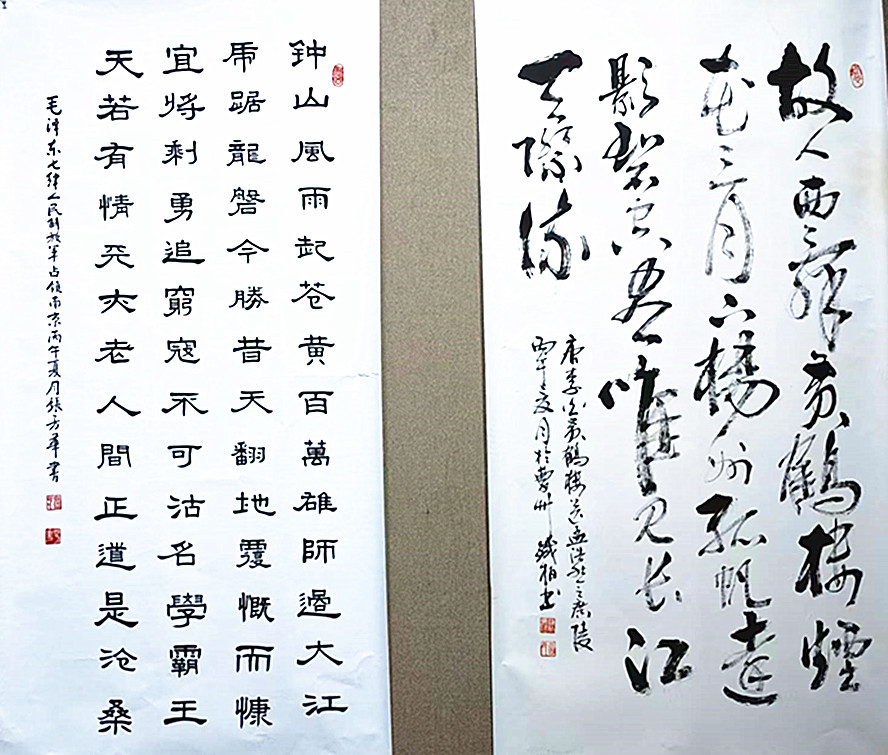 故人西辭黃鶴樓煙
花三月下揚州孤帆遠
影碧空尽唯見长江
天際流
唐李白黃鶴樓送孟浩然之廣陵
丙午夏月於曹州 鐵柏書
鈡山風雨起苍黄百萬雄師過大江
虎踞龍磐今勝昔天翻地覆慨而慷
宜将剩勇追窮寇不可沽名學霸王
天若有情天亦老人間正道是沧桑
毛泽东七律人民解放军占领南京丙午夏月張方華書